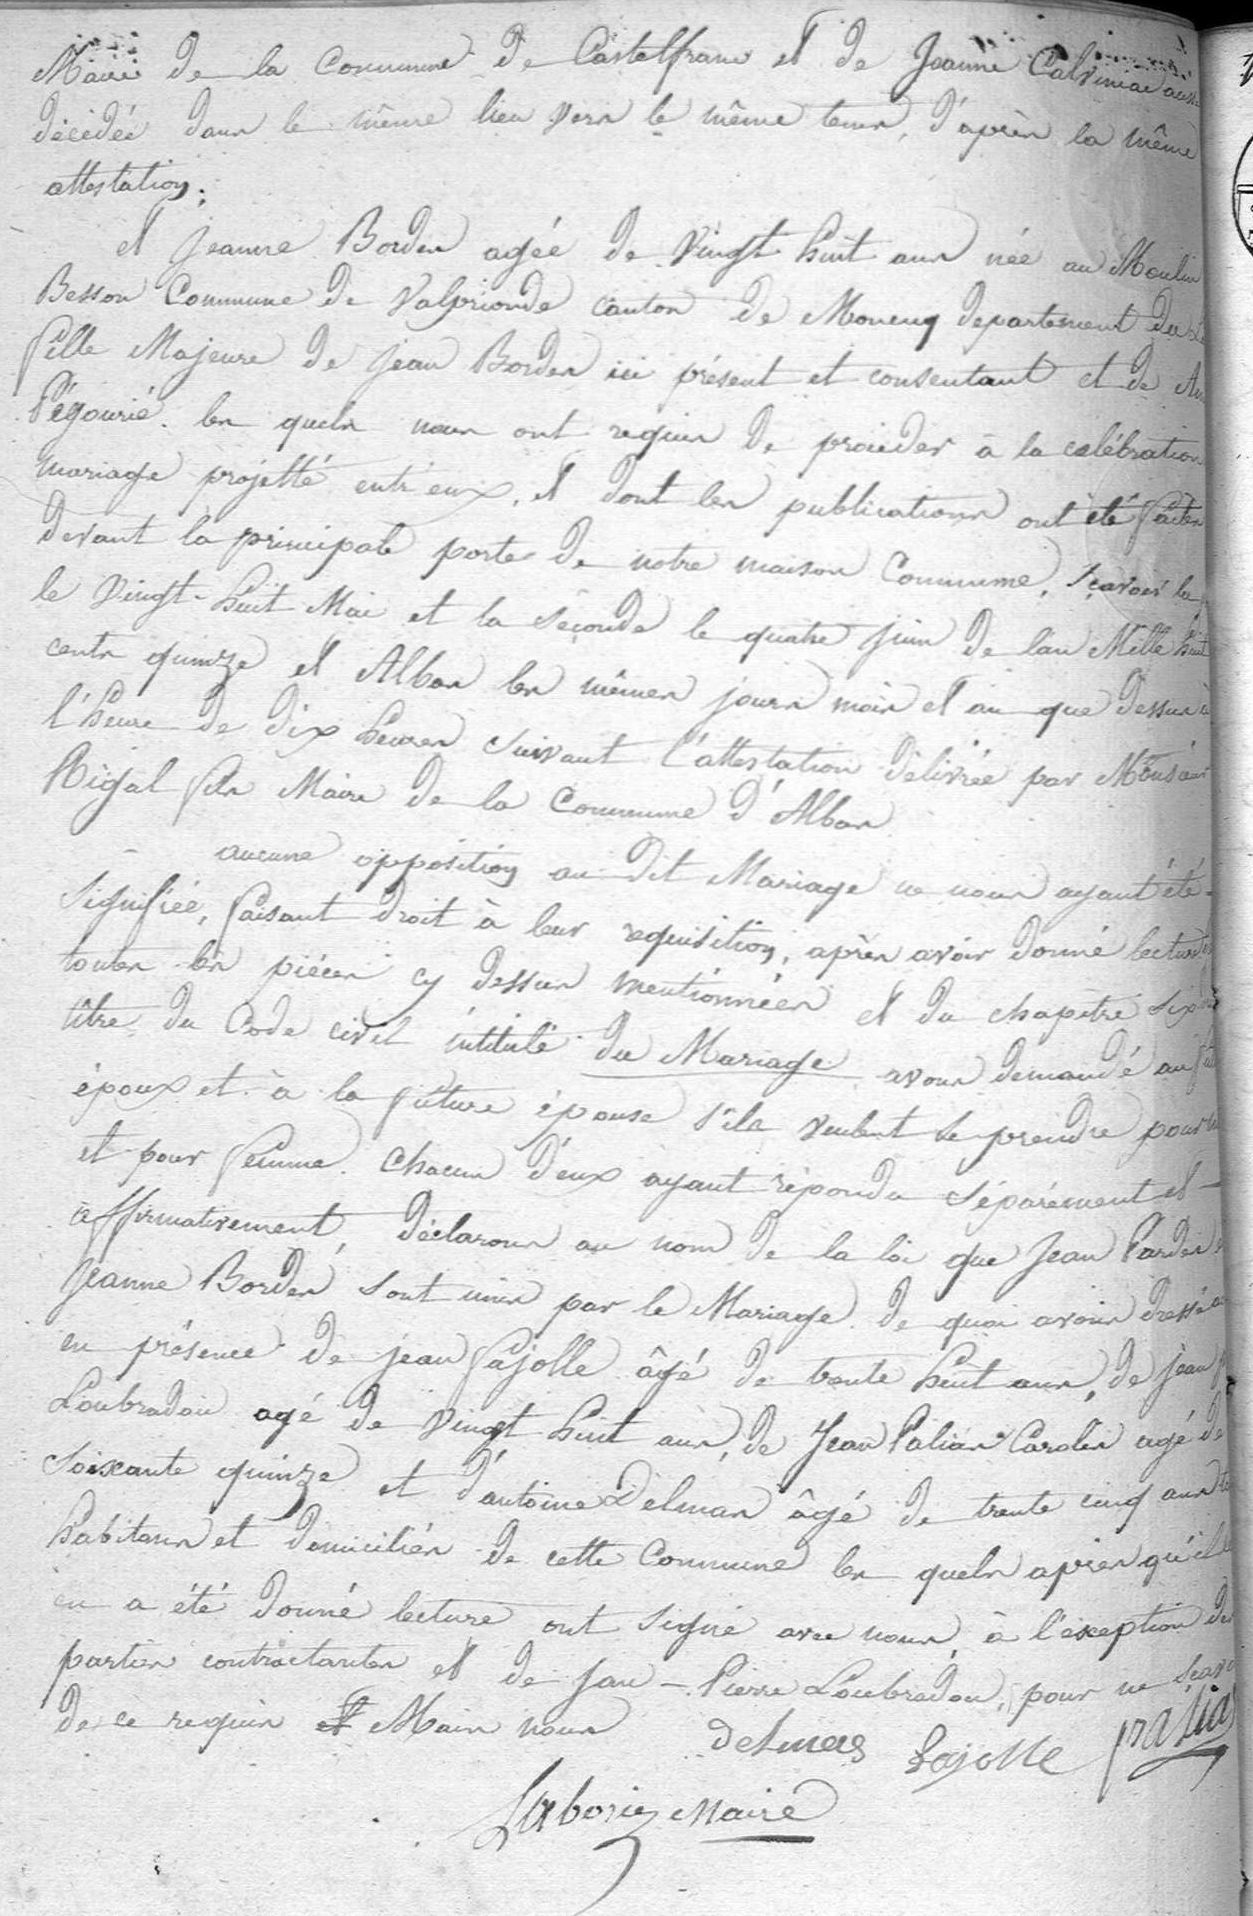 Maire de la Commune de Castelfranc et de Jeanne Calviniac aussi
décédée dans le même lieu vers le même tems, d'après la même
attestation;
et Jeanne Bordes agée de Vingt huit ans née au Moulin
Besson Commune de Valprionde canton de Moncuq departement du
fille Majeure de jean Bordes ici présent et consentant et de
Pégourié. les quels nous ont requis de procéder à la célébration
mariage projetté entr'eux, et dont les publications ont été faites
devant la principale porte de notre maison Commune, sçavoir la
le Vingt-huit Mai et la Séconde le quatre juin de l'an Mille huit
cents quinze et Albas les mêmes jours mois et an que dessus à
l'heure de dix heures suivant l'attestation délivrée par Monsieur
Rigal fils Maire de la Commune d'Albas
aucune opposition au dit Mariage ne nous ayant été
Signifiée, faisant droit à leur requisition, après avoir donné lecture
toutes les piéces cy dessus mentionnées et du chapitre Six
titre du Code civil intitulé du Mariage avons demandé au
époux et à la future épouse s'ils veulent se prendre pour
et pour femme. Chacun d'eux ayant répondu séparément et
affirmativement, déclarons au nom de la loi que Jean Pardes
Jeanne Bordes sont unis par le Mariage. de quoi avons dressé
en présence de jean Lajolle âgé de trente huit ans, de jean
Loubradou agé de vingt huit ans, de Jean Palias Caroles agé de
Soixante quinze et d'antoine Delmas âgé de trente cinq ans
habitans et domiciliés de cette Commune les quels apres qu'il
en a été donné lecture ont signé avec nous, à l'exception des
parties contractantes et de Jean-Pierre Loubradou, pour ne
de ce requis et Main nous Delmas Lajolle Palias
Laborie Maire